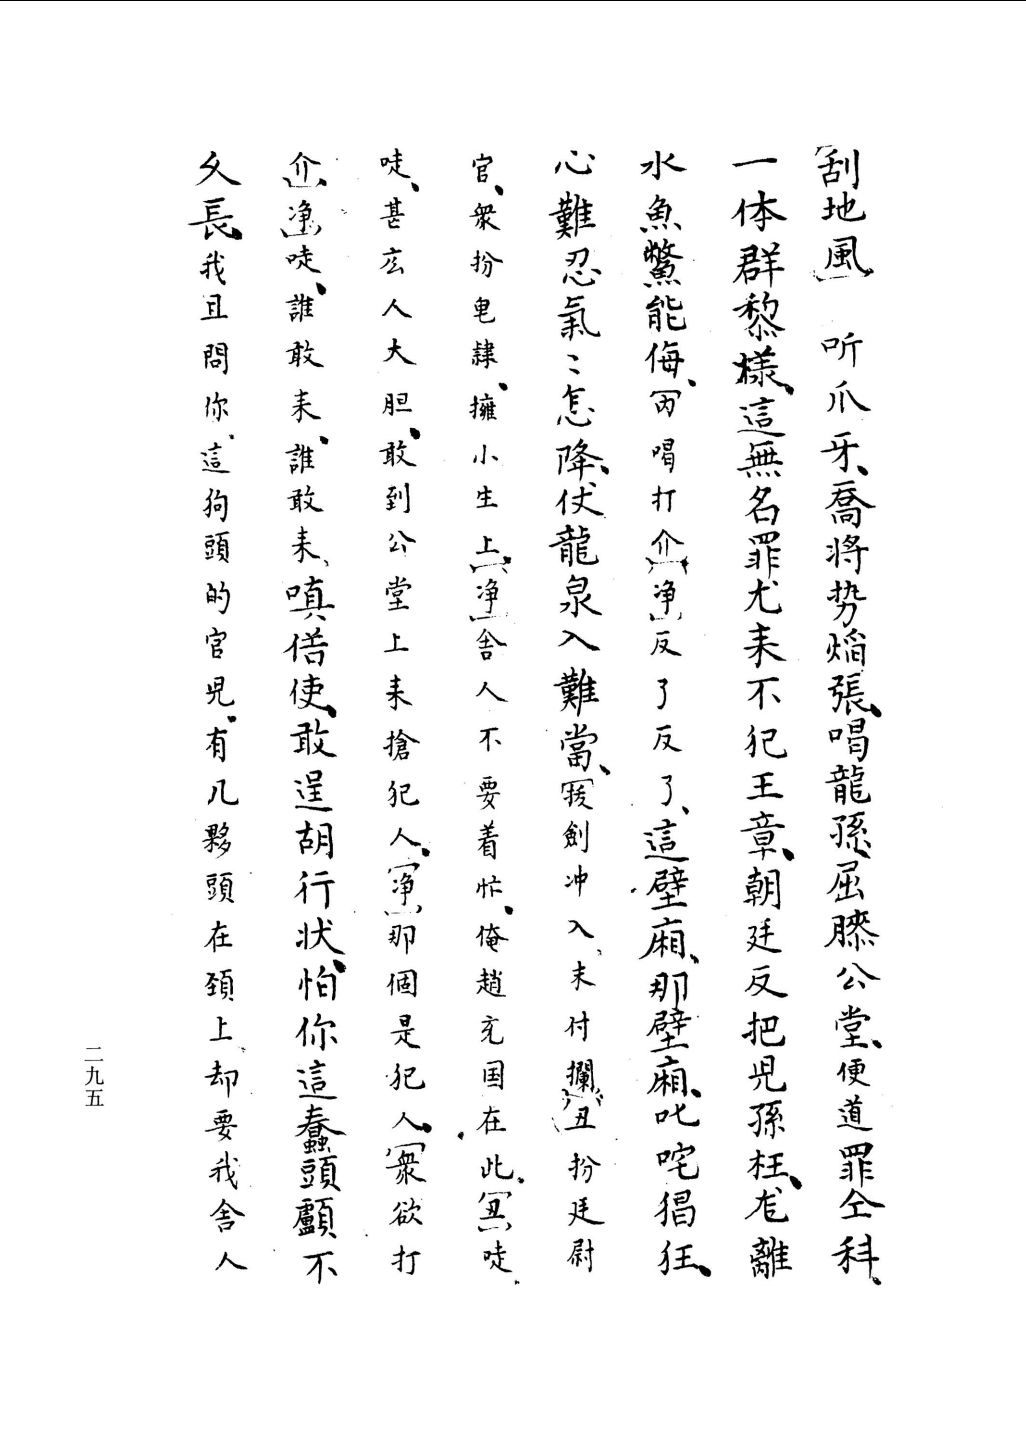 刮地風　听爪牙喬将势焰張喝龍孫屈膝公堂便道罪仝科
一体群黎樣這無名罪尤来不犯王章朝廷反把児孫枉尨離
水魚鱉能侮丙喝打介净反了反了這壁廂那壁廂叱咤猖狂
心難忍氣〻怎降仗龍泉入難當拔劍冲入末付攔丑扮廷尉
官衆扮皂隸擁小生上净舍人不要着忙俺趙充国在此丑唗
唗甚庅人大胆敢到公堂上来搶犯人净那個是犯人衆欲打
介净唗誰敢来誰敢来嗔偺使敢逞胡行状怕你這蠢頭顱不
久長我且問你這狗頭的官児有几夥頭在頚上却要我舍人
二九五